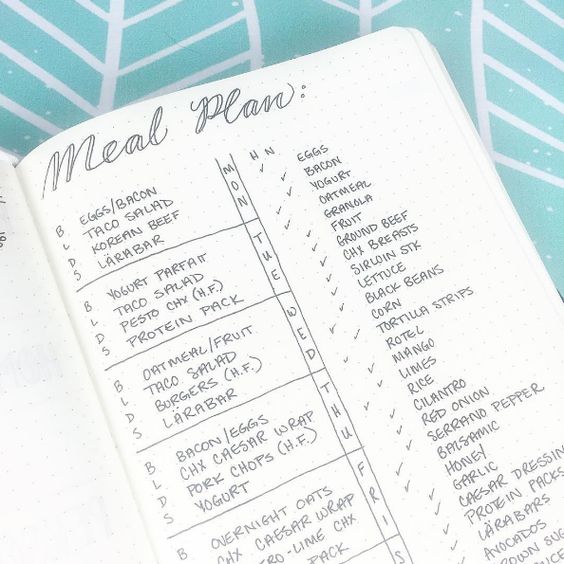 Meal Plan:
B EGGS/BACON
L TACO SALAD
D KOREAN BEEF
S LÄRABAR
MON
B YOGURT PARFAIT
L TACO SALAD
D PESTO CHX (H.F.)
S PROTEIN PACK
TUE
B OATMEAL/FRUIT
L TACO SALAD
D BORGERS (H.F.)
S LÄRABAR
WED
B BACON/EGGS
L CHX CAESAR WRAP
D PORK CHOPS (H.F.)
S YOGURT
THU
B OVERNIGHT OATS
CHX CAESAR WRAP
ERO-LIME CHX
PACK
FRI
S
H N
EGGS
BACON
YOGURT
OATMEAL
GRANOLA
FRUIT
GROUND BEEF
CHX BREASTS
SIRLOIN STK
LETTUCE
BLACK BEANS
CORN
TORTILLA STRIPS
ROTEL
MANGO
LIMES
RICE
CILANTRO
RED ONION
SERRANO PEPPER
BALSAMIC
HONEY
GARLIC
CAESAR DRESSIN
PROTEIN PACKS
LÄRABARS
AVOCADOS
ROWN SUG